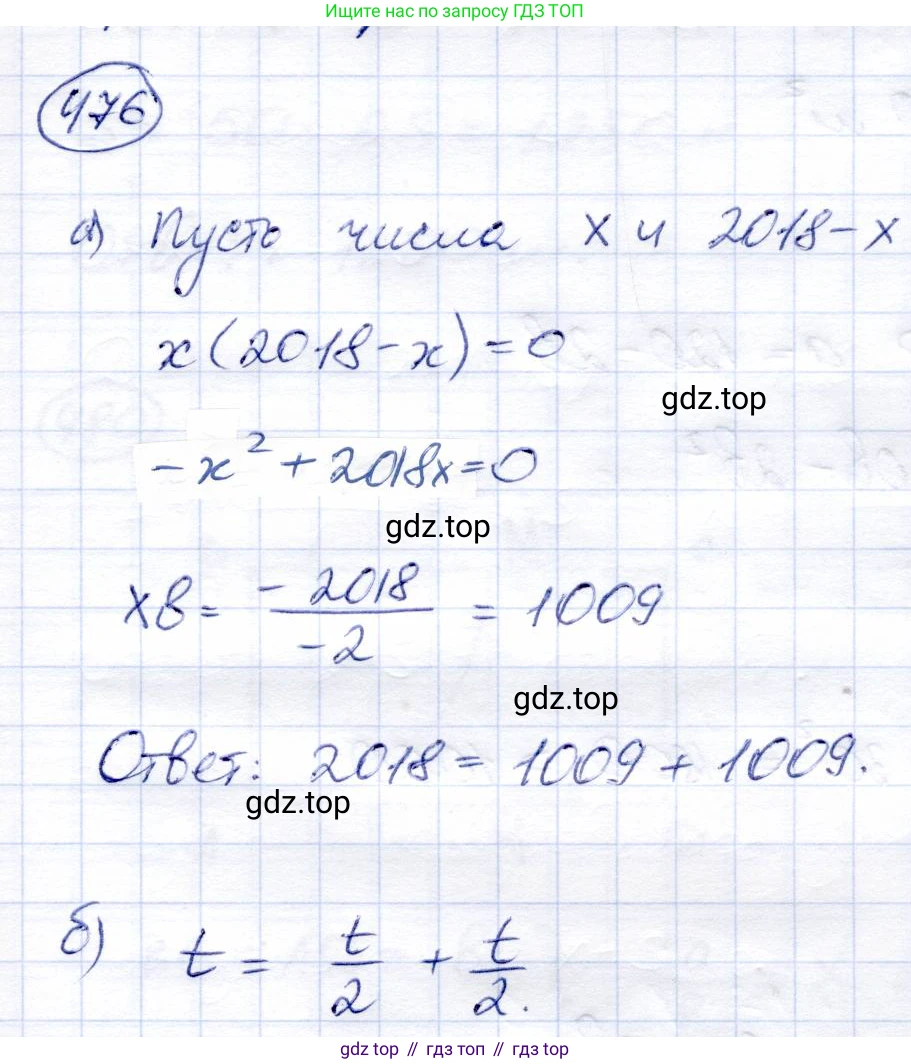 Ищите нас по запросу ГДЗ ТОП
476
а) Пусть числа x и 2018-x
x(2018-x)=0
gdz.top
-x²+2018x=0
gdz.top
xв = -2018/-2 = 1009
gdz.top
Ответ: 2018 = 1009 + 1009.
gdz.top
б) t = t/2 + t/2.
gdz top // гдз топ // гдз top